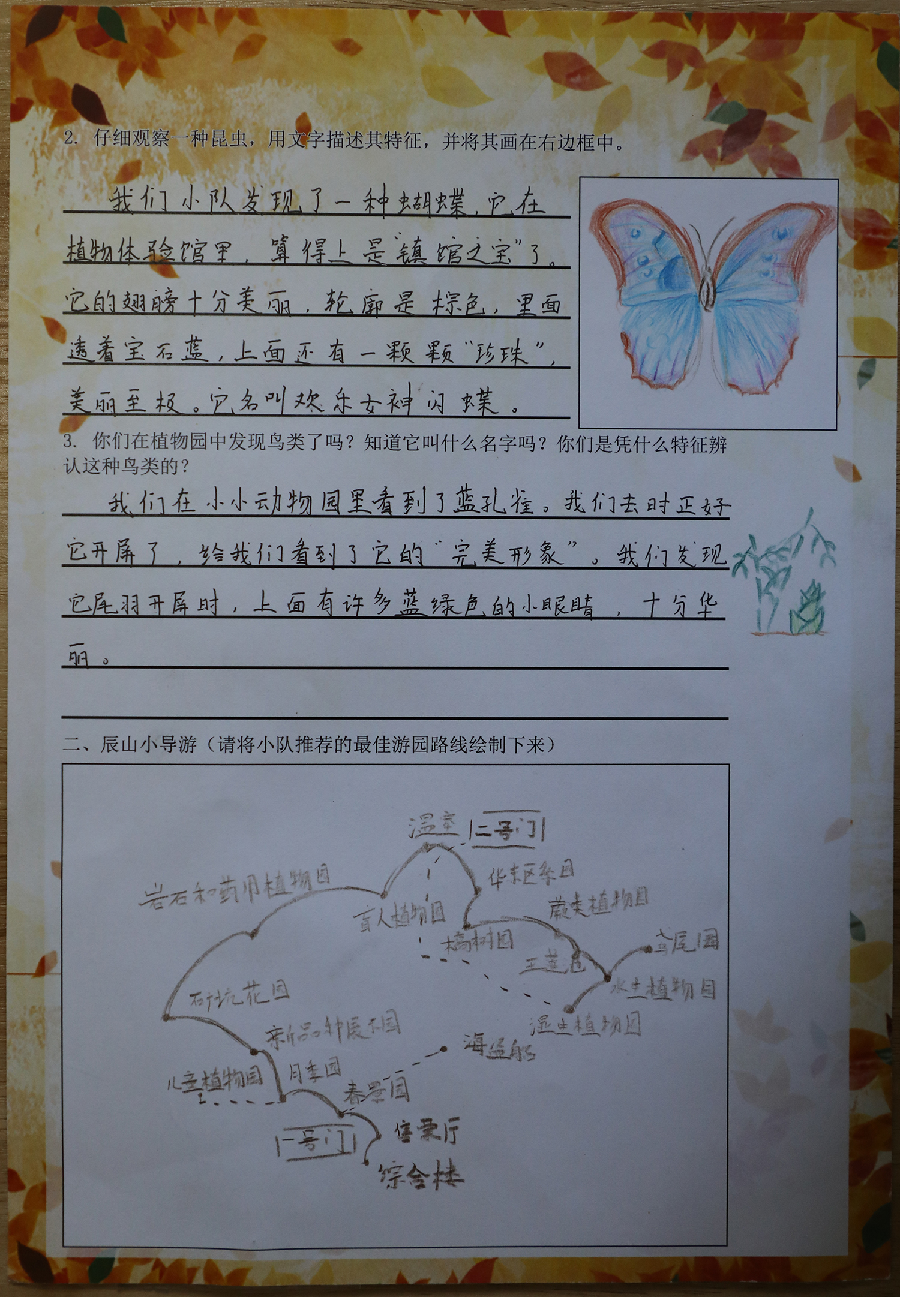 2. 仔细观察一种昆虫，用文字描述其特征，并将其画在右边框中。
我们小队发现了一种蝴蝶，它在
植物体验馆里，算得上是“镇馆之宝”了。
它的翅膀十分美丽，轮廓是棕色，里面
透着宝石蓝，上面还有一颗颗“珍珠”，
美丽至极。它名叫欢乐女神闪蝶。
3. 你们在植物园中发现鸟类了吗？知道它叫什么名字吗？你们是凭什么特征辨
认这种鸟类的？
我们在小小动物园里看到了蓝孔雀。我们去时正好
它开屏了，给我们看到了它的“完美形象”。我们发现
它尾羽开屏时，上面有许多蓝绿色的小眼睛，十分华
丽。
二、辰山小导游（请将小队推荐的最佳游园路线绘制下来）
温室
二号门
华东区系园
岩石和药用植物园
盲人植物园
蕨类植物园
槭树园
鸢尾园
王莲池
水生植物园
矿坑花园
湿生植物园
新品种展示园
海盗船
儿童植物园
月季园
春景园
一号门
售票厅
综合楼